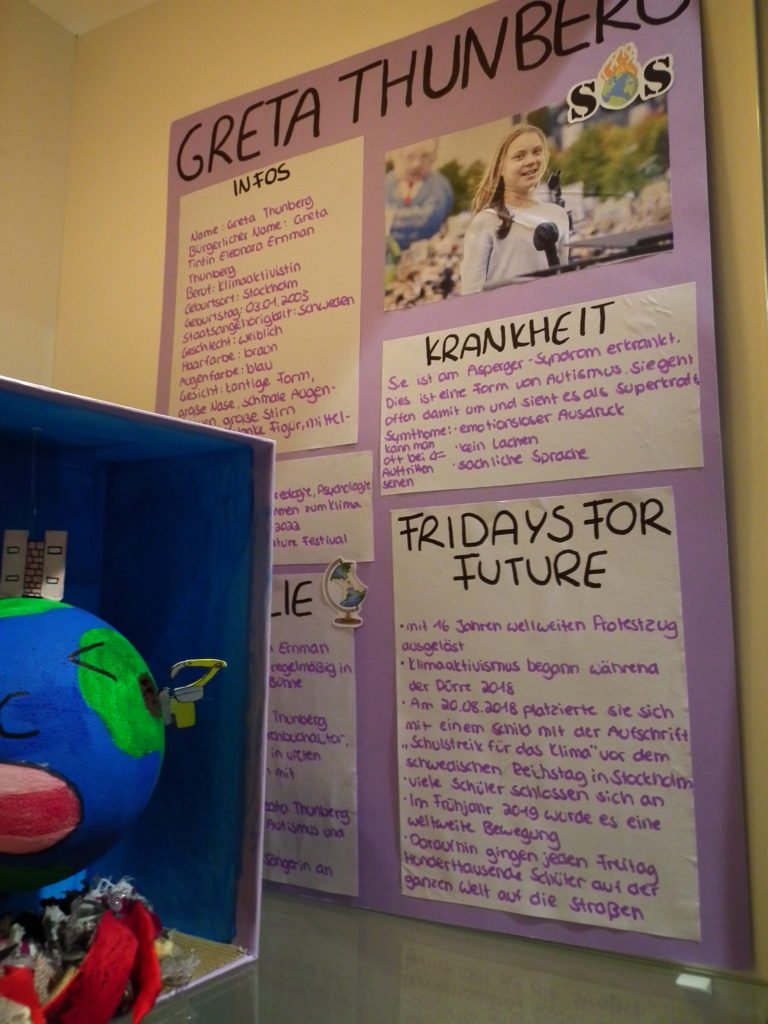 GRETA THUNBERG
SOS
INFOS
Name: Greta Thunberg
Bürgerlicher Name: Greta
Tintin Eleonora Ernman
Thunberg
Beruf: Klimaaktivistin
Geburtsort: Stockholm
Geburtstag: 03.01.2003
Staatsangehörigkeit: Schweden
Geschlecht: weiblich
Haarfarbe: braun
Augenfarbe: blau
Gesicht: kantige Form,
große Nase, schmale Augen-
große Stirn
Figur, mittel-
KRANKHEIT
Sie ist am Asperger-Syndrom erkrankt.
Dies ist eine Form von Autismus. Sie geht
offen damit um und sieht es als Superkraft
Symthome: · emotionsloser Ausdruck
kann man
oft bei · kein Lachen
Auftritten · sachliche Sprache
sehen
Psychologie
zum Klima
2022
Festival
LIE
Ernman
regelmäßig in
Bühne
Thunberg
in vielen
mit
Thunberg
Autismus und
sängerin an
FRIDAYS FOR
FUTURE
· mit 16 Jahren weltweiten Protestzug
ausgelöst
· Klimaaktivismus begann während
der Dürre 2018
· Am 20.08.2018 platzierte sie sich
mit einem Schild mit der Aufschrift
„Schulstreik für das Klima" vor dem
schwedischen Reichstag in Stockholm
· viele Schüler schlossen sich an
· Im Frühjahr 2019 wurde es eine
weltweite Bewegung
· Daraufhin gingen jeden Freitag
Hunderttausende Schüler auf der
ganzen Welt auf die Straßen